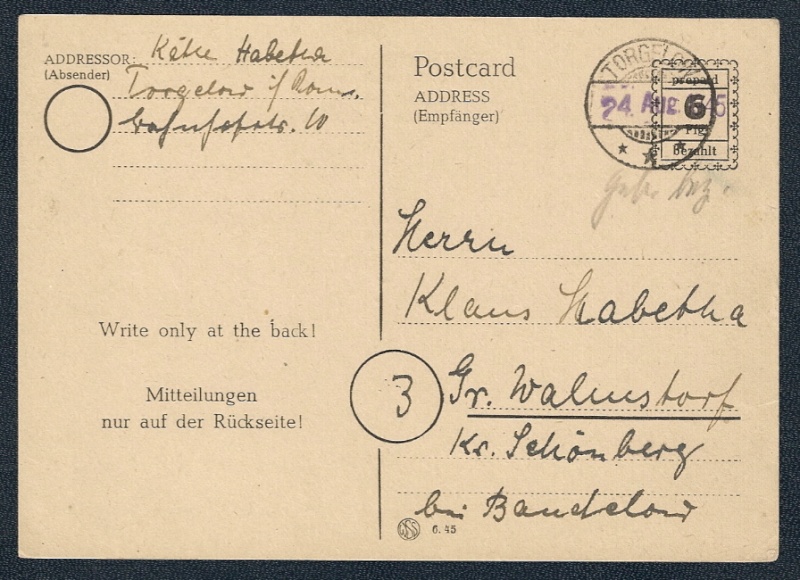 ADDRESSOR: Käthe Habetha
(Absender)
Torgelow i/Pom.
Bahnhofstr. 10
Postcard
ADDRESS
(Empfänger)
TORGELOW
24. AUG. 1945
prepaid
6
Pfg.
Bezahlt
Gebr. bez.
Herrn
Klaus Habetha
3
Gr. Walmstorf
Kr. Schönberg
bei
Write only at the back!
Mitteilungen
nur auf der Rückseite!
6. 45